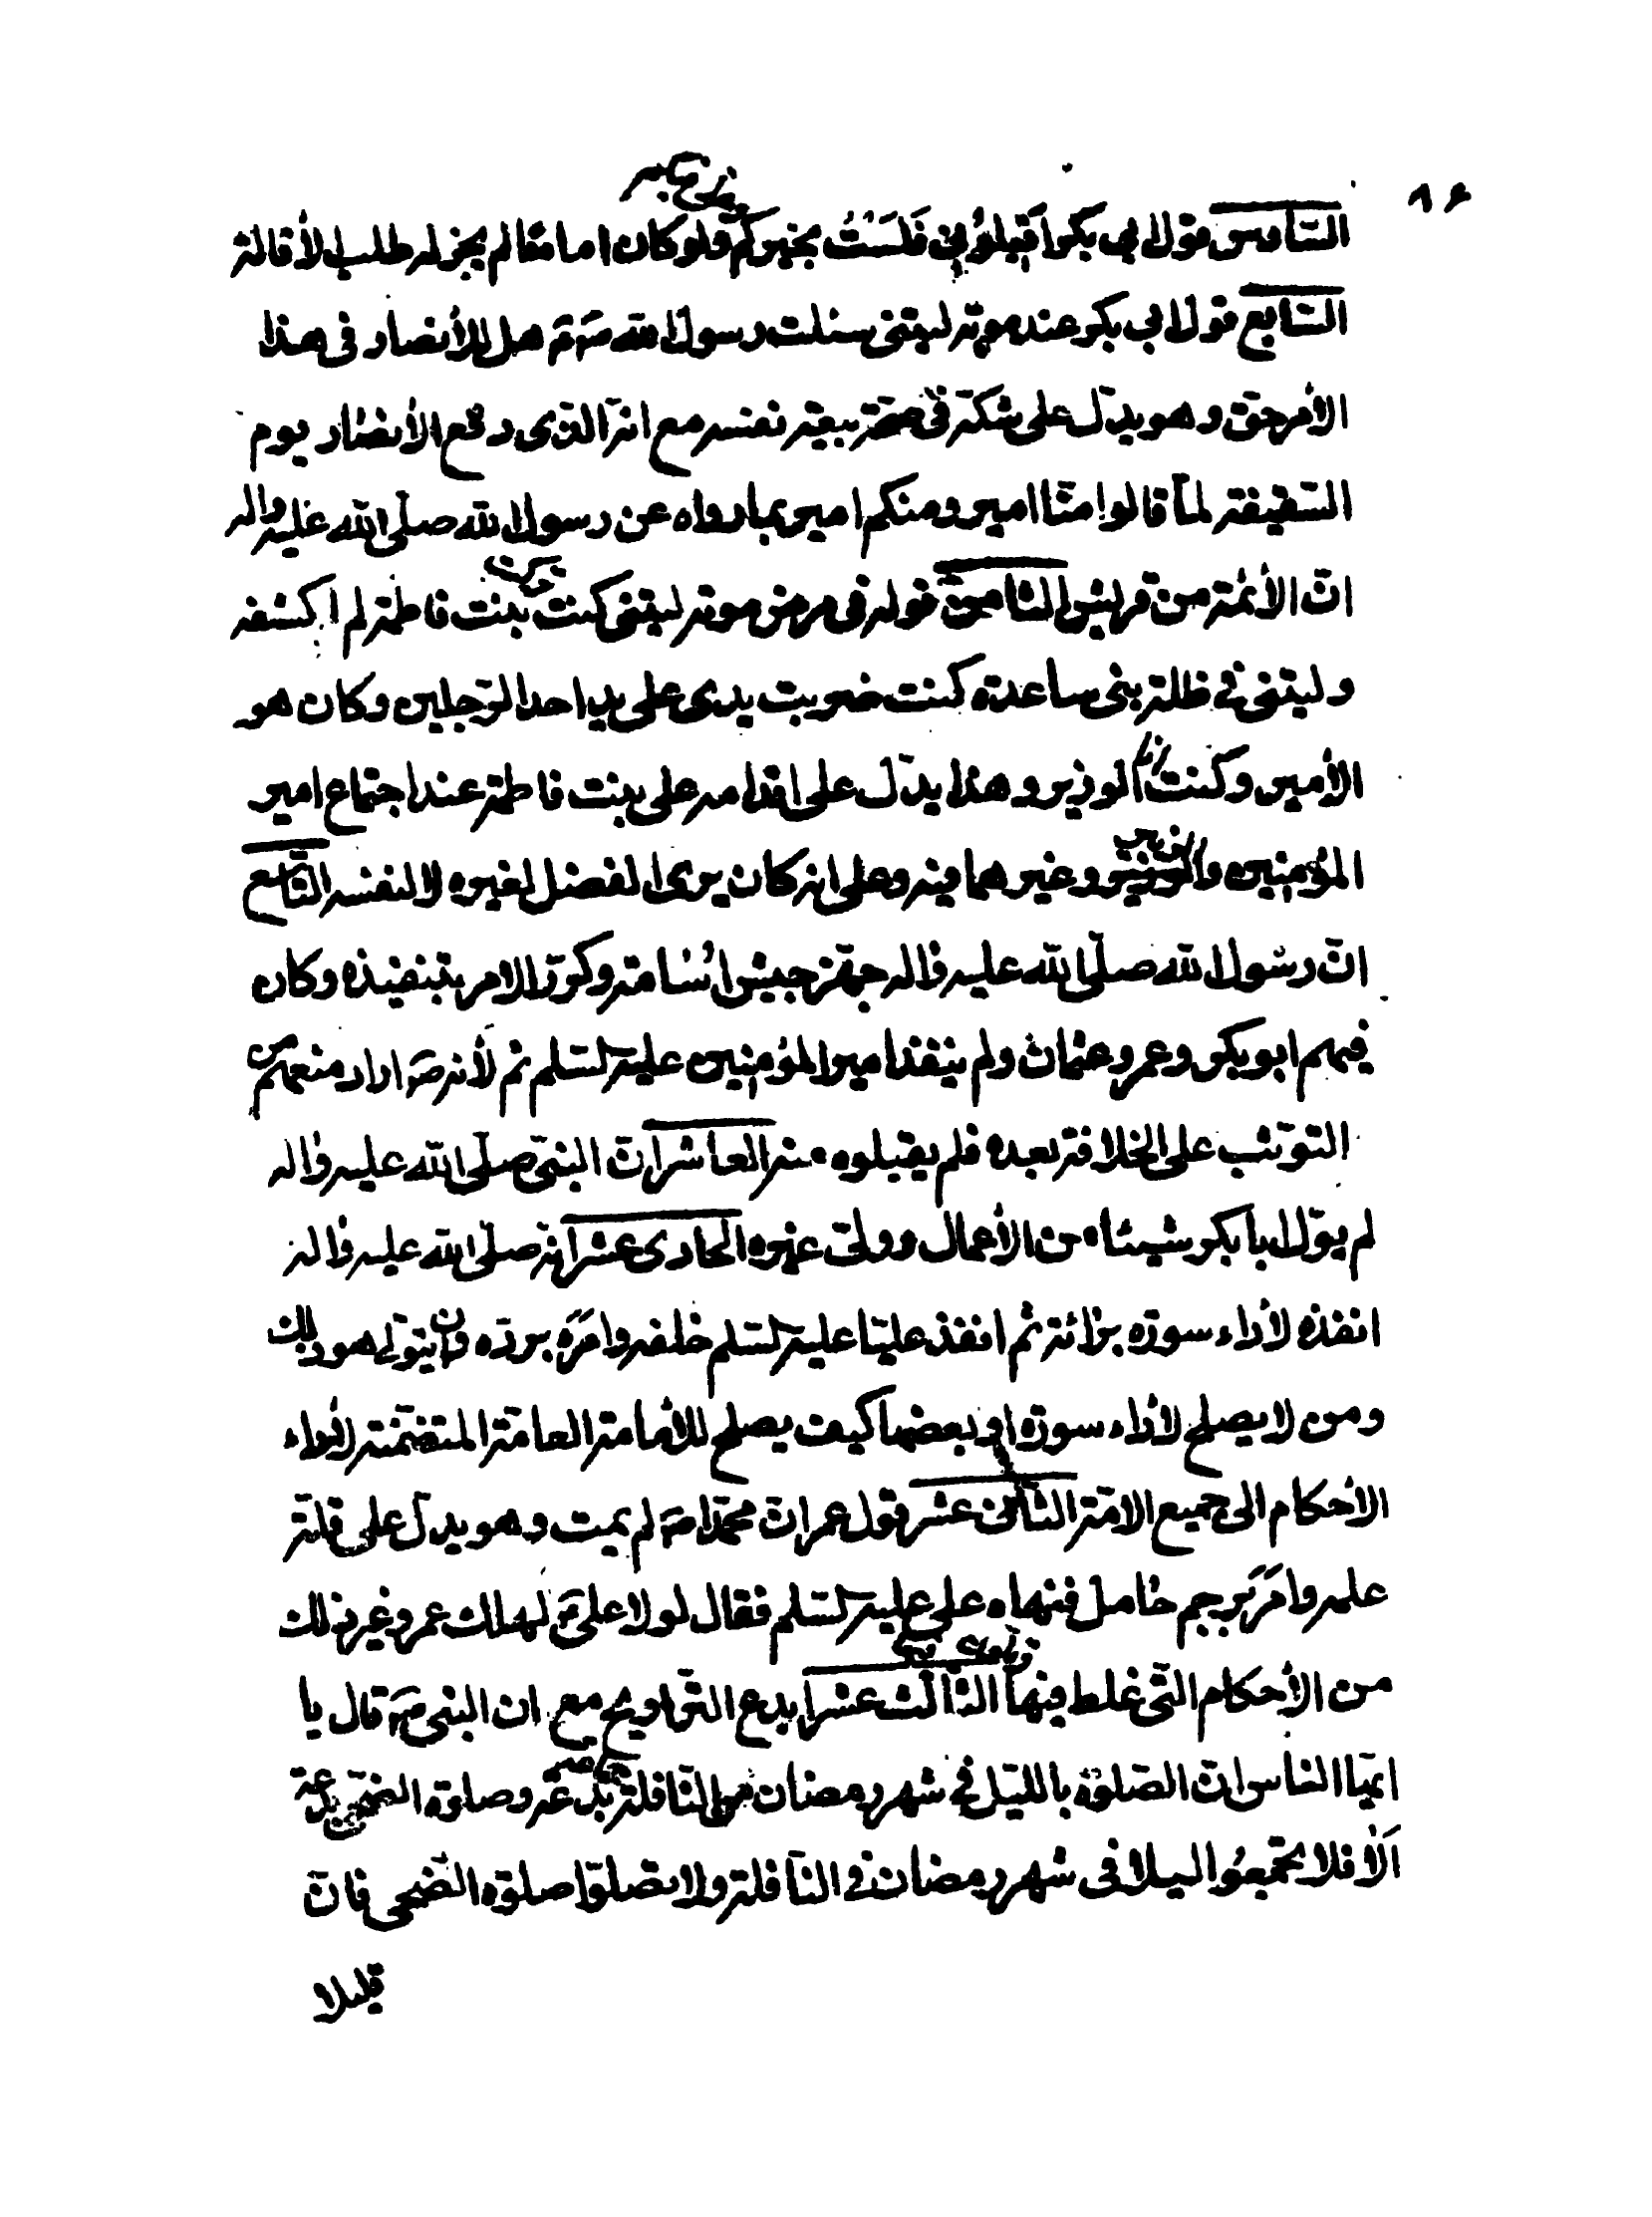 ٨۶
السّادس قول ابى بكر اَقيلوُنى فَلَسْتُ بخيركم وعلىّ فيكم ولو كان اماما لم يجز له طلب الأقالة
السّابع قول ابى بكر عند موته ليتنى سئلت رسول الله صَ هل للأنصار فى هذا
الأمر حق وهو يدّل على شكّه فى صحّة بيعة نفسه مع انّه الّذى دفع الأنصار يوم
السّقيفة لمّا قالوا منّا امير ومنكم امير بما رواه عن رسول الله صلّى الله عليه واله
انّ الأئمّة من قريش الثّامن قوله فى مرض موته ليتنى كنت تركت بيت فاطمة لم اكشفه
وليتنى فى ظلّة بنى ساعدة كنت ضربت يدى على يد احد الرّجلين وكان هو
الأمير وكنت انا الوزير وهذا يدّل على اقدامه على بيت فاطمة عند اجتماع امير
المؤمنين والزبير وغيرهما فيه وعلى انه كان يرى الفضل لغيره لا لنفسه التّاسع
انّ رسول الله صلّى الله عليه واله جهّز جيش اُسامة وكرّر الامر بتنفيذه وكان
فيهم ابو بكر وعمر وعثمان ولم ينفذ امير المؤمنين عليه السّلم ثم لأنه صَ اراد منعهم من
التوثّب على الخلافة بعده فلم يقبلوه منه العاشر انّ النبىّ صلّى الله عليه واله
لم يولّ ابا بكر شيئا من الأعمال وولّى غيره الحادى عشر انه صلّى الله عليه واله
انفذه لأداء سورة برائة ثم انفذ عليّا عليه السّلم خلفه وامَرَه بردّه وان يتولّى هو ذلك
ومن لا يصلح لأداء سورة او بعضها كيف يصلح للأمامة العامّة المتضمّنة لأداء
الأحكام الى جميع الامّة الثّانى عشر قول عمر انّ محمّدا صَ لم يمت وهو يدلّ على قلّة
علمه وامَرَ برجم حامل فنهاه علىّ عليه السّلم فقال لولا علىّ لهلك عمر وغير ذلك
من الأحكام الّتى غلط فيها الثّالث عشر ابدع التّراويح مع ان النبى صَ قال يا
ايّها النّاس انّ الصّلوة بالليّل فى شهر رمضان من النّافلة جماعة بدعة وصلوة الضّحى بدعة
اَلا فلا تجتمعُوا ليلا فى شهر رمضان فى النّافلة ولا تصلّوا صلوة الضّحى فانّ
قليلا